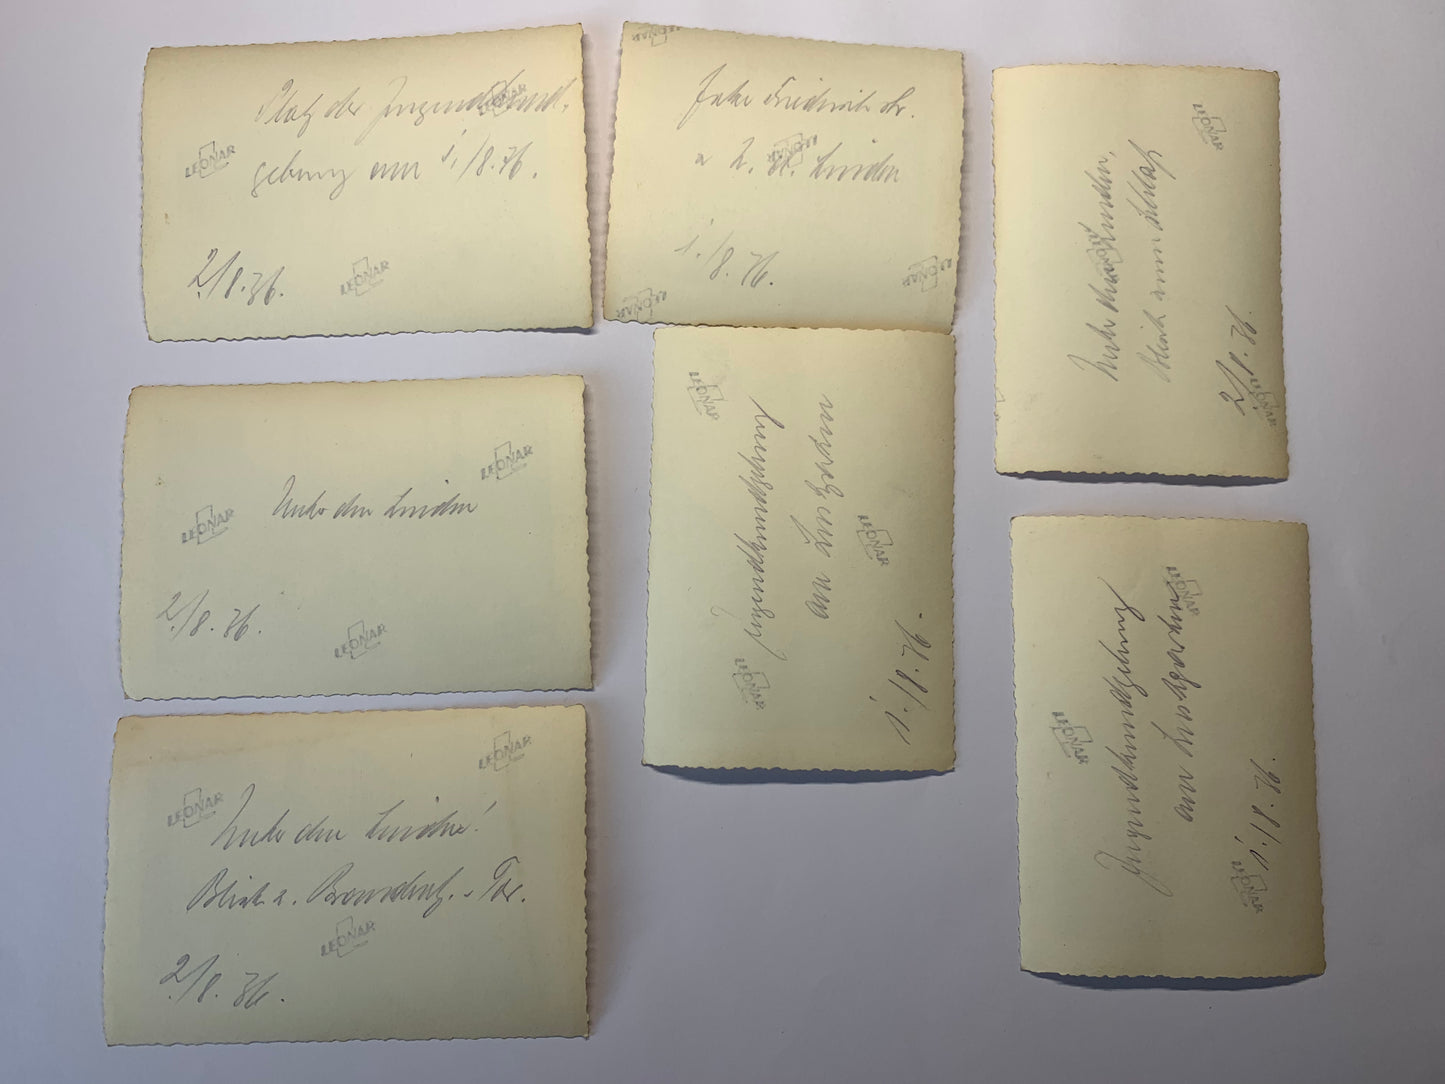 Platz der Jugendkund-
gebung am 1./8.36.
2./8.36.
LEONAR
LEONAR
LEONAR
Ecke Friedrich Str.
u. d. Linden
1./8.36.
LEONAR
LEONAR
LEONAR
LEONAR
Unter den Linden,
Blick zum Schloß
2./8.36.
LEONAR
LEONAR
LEONAR
Unter den Linden
2./8.36.
LEONAR
LEONAR
LEONAR
Jugendkundgebung
am Lustgarten
1./8.36.
LEONAR
LEONAR
LEONAR
Jugendkundgebung
am Lustgarten
1./8.36.
LEONAR
LEONAR
LEONAR
Unter den Linden!
Blick a. Brandenbg.-Tor.
2./8.36.
LEONAR
LEONAR
LEONAR